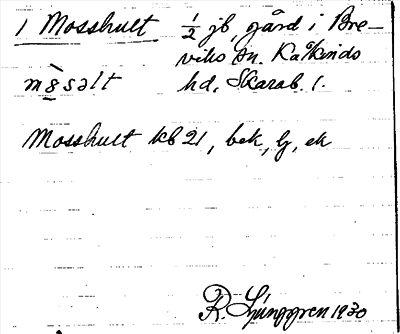 1 Mosshult ½ jb, gård i Bre-
viks sn. Kåkinds
mə̀səlt hd, Skarab. l.
Mosshult kb 21, bek, lj, ek
R. Ljunggren 1930